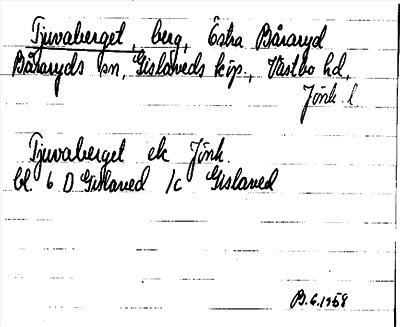 Tjuvaberget, berg, Östra Båraryd
Båraryds sn, Gislaveds köp., Västbo hd,
Jönk. l
Tjuvaberget ek Jönk.
bl. 6 D Gislaved 1c Gislaved
B.G.1958